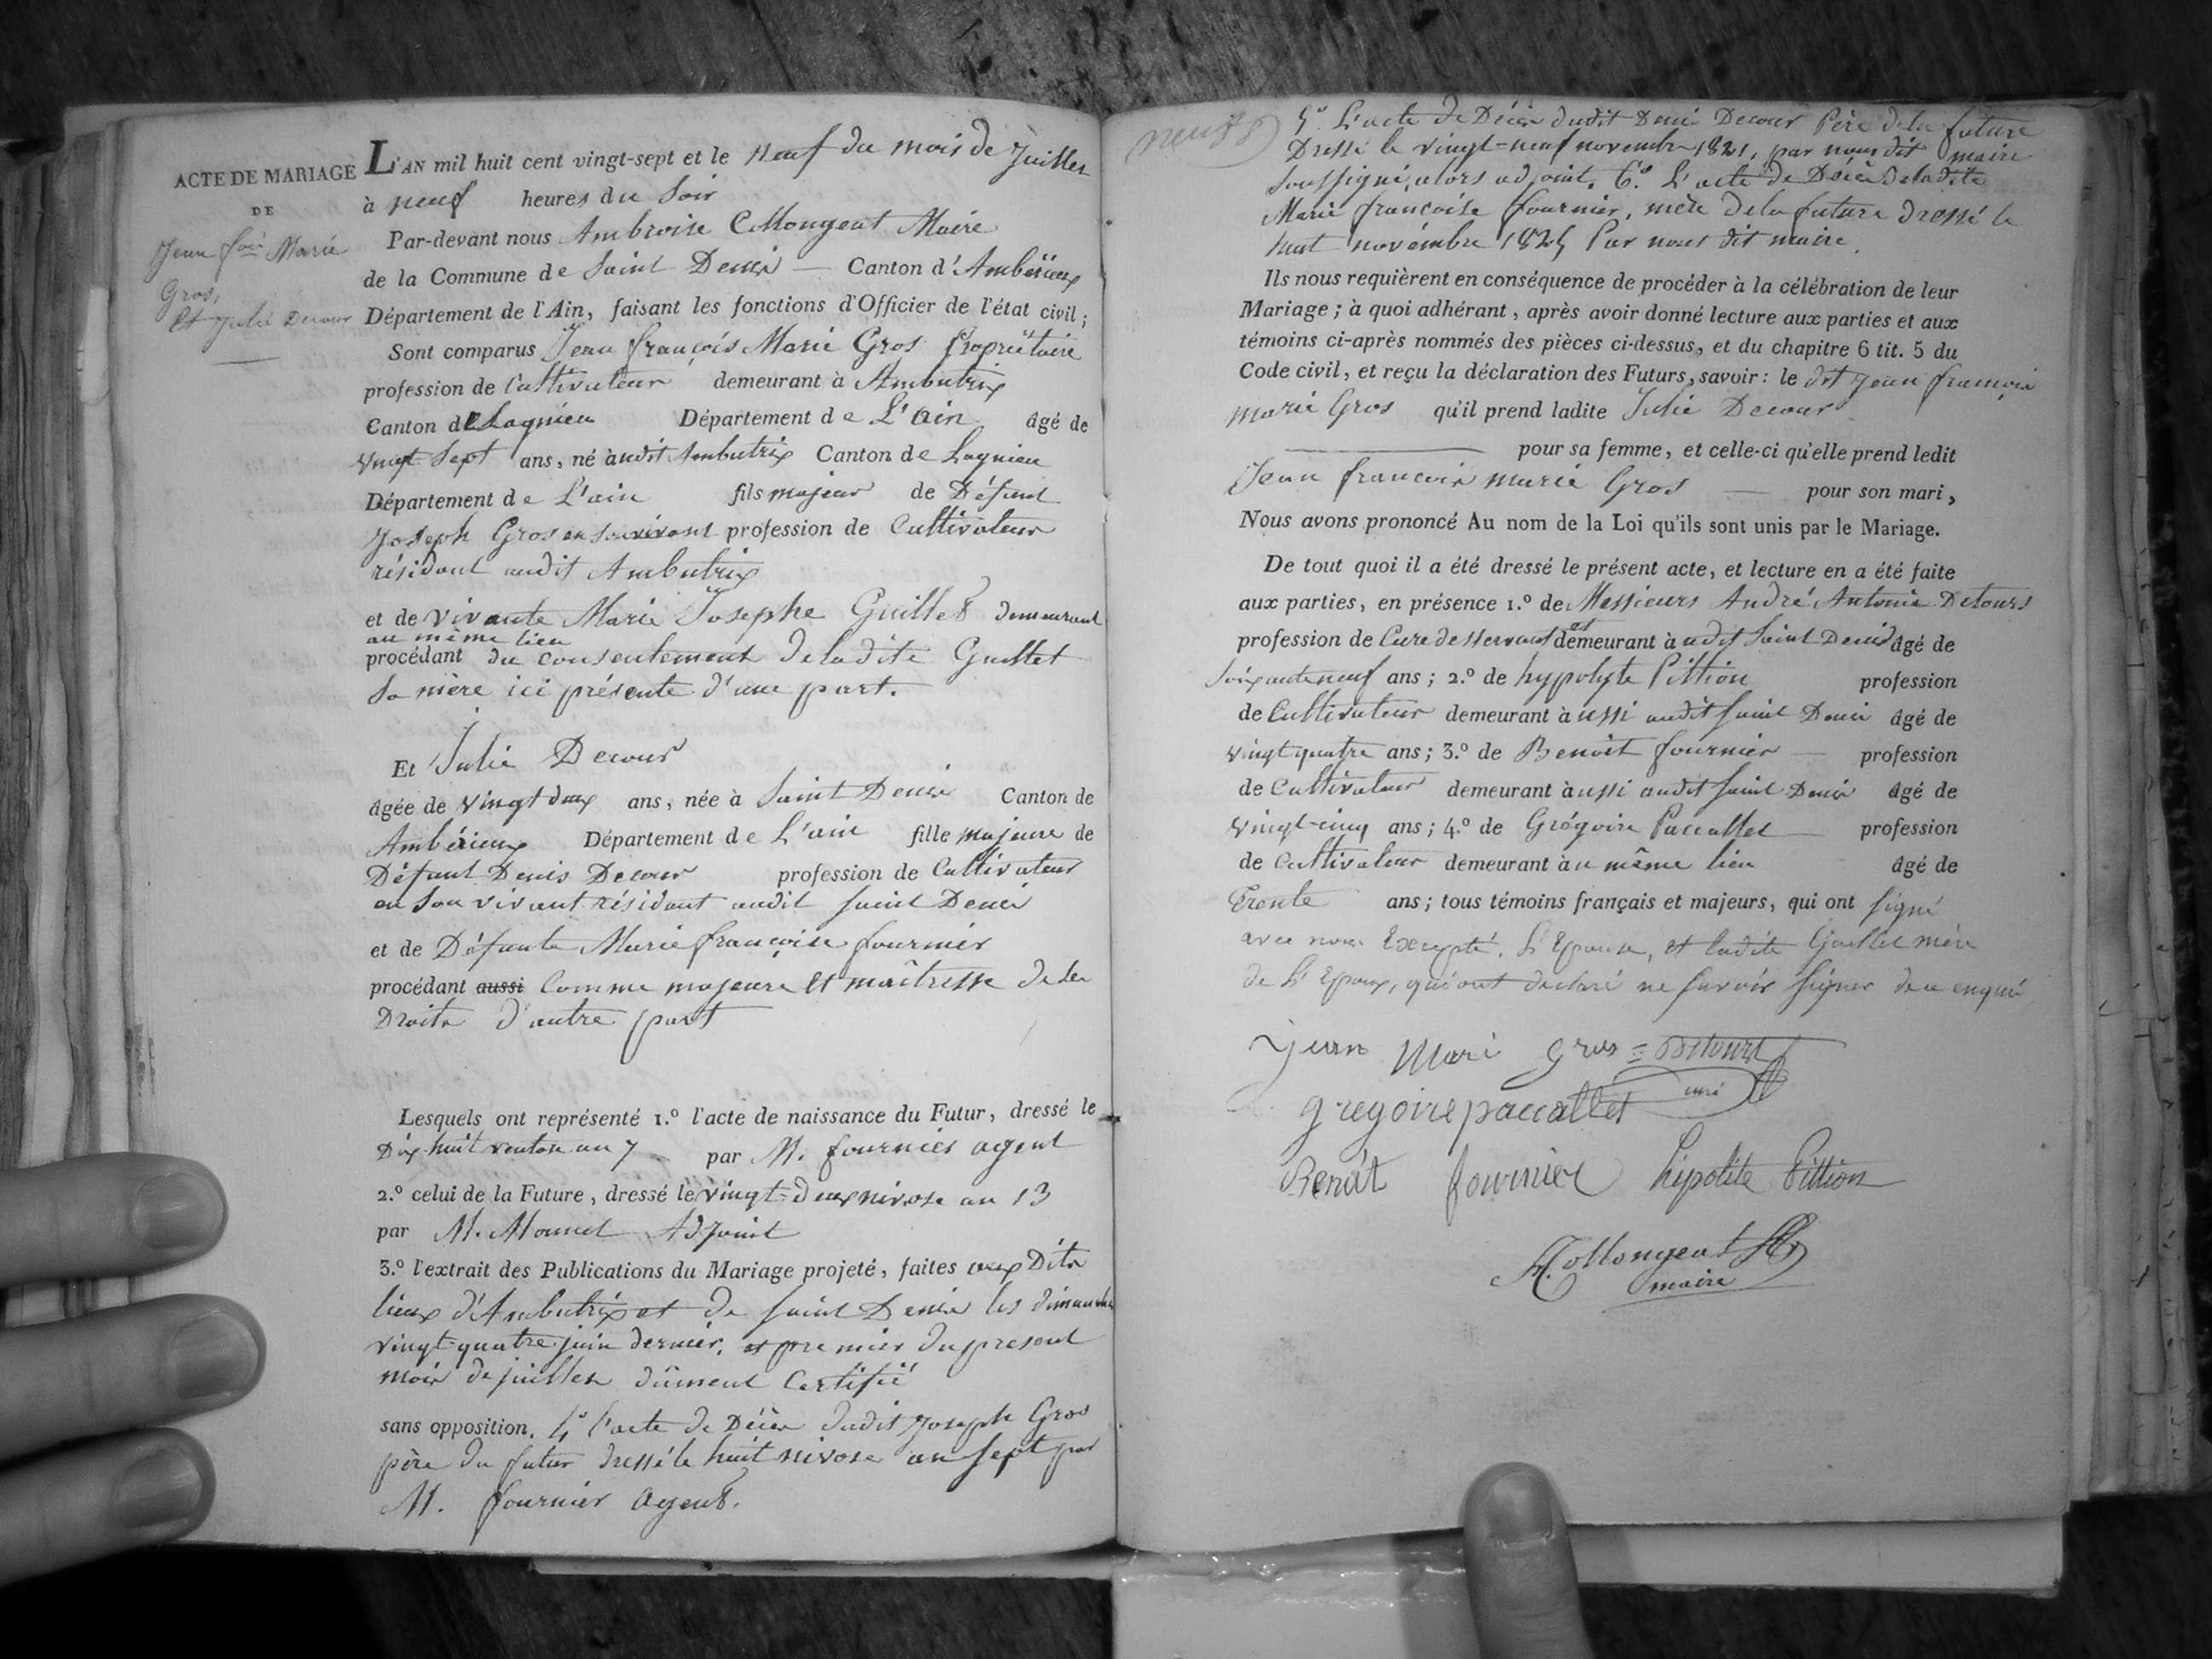 ACTE DE MARIAGE
DE
Jean fois Marie
Gros,
Et Julie Decour
L'AN mil huit cent vingt-sept et le neuf du mois de Juillet
à neuf heures du Soir
Par-devant nous Ambroise Collongeat Maire
de la Commune de Saint Denis — Canton d'Ambérieux
Département de l'Ain, faisant les fonctions d'Officier de l'état civil ;
Sont comparus Jean françois Marie Gros Propriétaire
profession de Cultivateur demeurant à Ambutrix
Canton de Lagnieu Département de L'ain âgé de
vingt Sept ans, né audit Ambutrix Canton de Lagnieu
Département de L'ain fils majeur de Défunt
Joseph Gros en son vivant profession de Cultivateur
résidant audit Ambutrix
et de vivante Marie Josephe Guillet demeurant
au même lieu
procédant du consentement de ladite Guillet
Sa mère ici présente d'une part.
Et Julie Decour
âgée de vingt deux ans, née à Saint Denis Canton de
Ambérieux Département de L'ain fille majeure de
Défunt Denis Decour profession de Cultivateur
en Son vivant résidant audit Saint Denis
et de Défunte Marie françoise fournier
procédant aussi Comme majeure et maîtresse de ses
Droits d'autre part
Lesquels ont représenté 1.º l'acte de naissance du Futur, dressé le
Dix huit ventose an 7 par M. fournier agent
2.º celui de la Future, dressé le vingt-deux nivose an 13
par M. Adjoint
3.º l'extrait des Publications du Mariage projeté, faites aux Dits
lieux d'Ambutrix et de Saint Denis les dimanches
vingt-quatre juin dernier, et premier du present
mois de juillet dûment Certifié
sans opposition. 4º l'acte de Décès dudit Joseph Gros
père du futur dressé le huit nivose an Sept par
M. fournier Agent.
neuf
5º L'acte de Décès dudit Denis Decour Père de la future
Dressé le vingt-neuf novembre 1821, par nous dit maire
soussigné, alors adjoint. 6º L'acte de Décès de ladite
Marie francoise fournier, mère de la future dressé le
huit novembre 1825 Par nous dit maire.
Ils nous requièrent en conséquence de procéder à la célébration de leur
Mariage ; à quoi adhérant, après avoir donné lecture aux parties et aux
témoins ci-après nommés des pièces ci-dessus, et du chapitre 6 tit. 5 du
Code civil, et reçu la déclaration des Futurs, savoir : le dit Jean francois
marie Gros qu'il prend ladite Julie Decour
pour sa femme, et celle-ci qu'elle prend ledit
Jean francois marie Gros — pour son mari,
Nous avons prononcé Au nom de la Loi qu'ils sont unis par le Mariage.
De tout quoi il a été dressé le présent acte, et lecture en a été faite
aux parties, en présence 1.º de Messieurs André Antoine Detours
profession de Curé desservant et demeurant à udit Saint Denis âgé de
Soixante neuf ans ; 2.º de hypolyte Pittion profession
de Cultivateur demeurant à ussi audit Saint Denis âgé de
vingt quatre ans ; 3.º de Benoit fournier — profession
de Cultivateur demeurant à ussi audit Saint Denis âgé de
vingt-cinq ans ; 4.º de Grégoire Paccallet — profession
de Cultivateur demeurant à u même lieu âgé de
Trente ans ; tous témoins français et majeurs, qui ont signé
avec nous Excepté, L'Epouse, et ladite Guillet mère
de L'Epoux, qui ont déclaré ne savoir signer de ce enquis
jean Mari gros Detours
curé
gregoire paccallet
Benoit fournier hipolite Pittion
A. Collongeat
maire